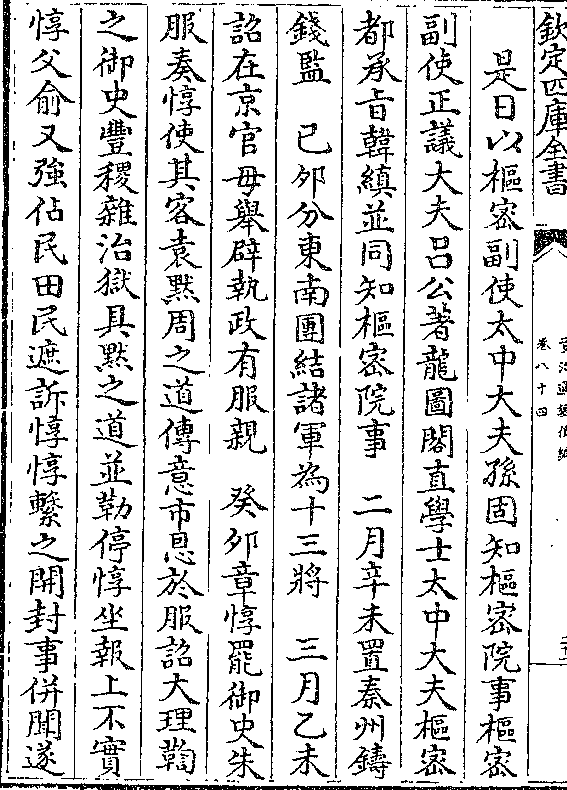 欽定四庫全書
資治通鑑後編
卷八十四
是日以樞密副使太中大夫孫固知樞密院事樞密
副使正議大夫呂公著龍圖閣直學士太中大夫樞密
都承旨韓縝並同知樞密院事　二月辛未置秦州鑄
錢監　己卯分東南團結諸軍為十三將　三月乙未
詔在京官毋舉辟執政有服親　癸卯章惇罷御史朱
服奏惇使其客袁黙周之道傳意市恩於服詔大理鞫
之御史豐稷雜治獄具黙之道並勒停惇坐報上不實
惇父俞又強佔民田民遮訴惇惇繫之開封事併聞遂